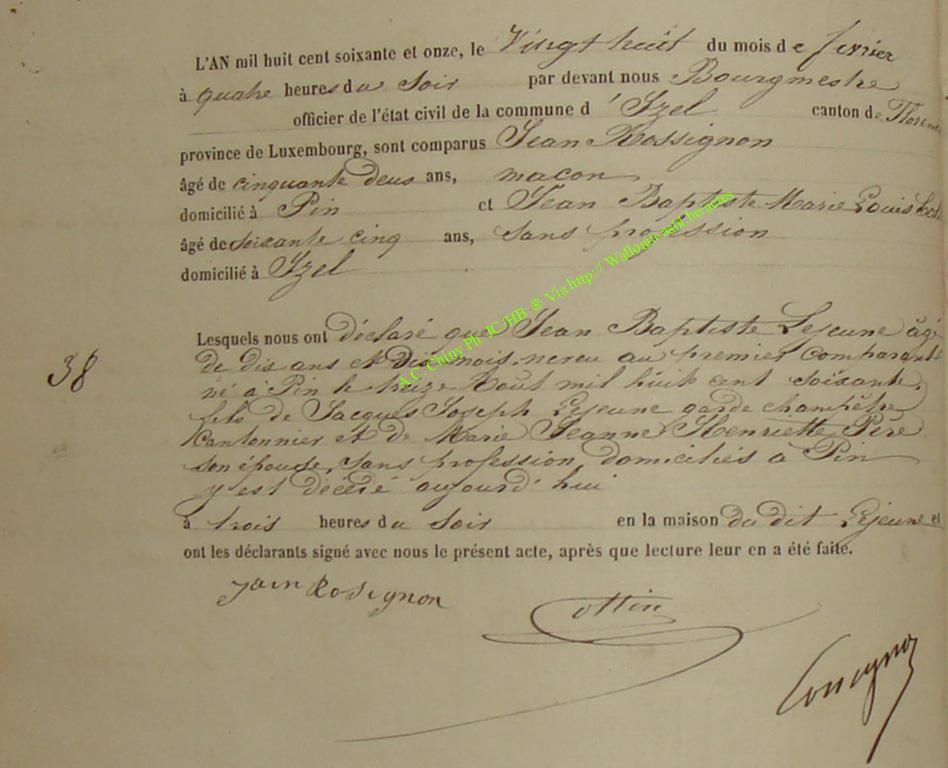 L'AN mil huit cent soixante et onze, le Vingt huit du mois de fevrier
à quatre heures du soir par devant nous Bourgmestre
officier de l'état civil de la commune d'Izel canton de Floren
province de Luxembourg, sont comparus Jean Rossignon
âgé de cinquante deux ans, macon
domicilié à Pin et Jean Baptiste Marie Louis
âgé de soixante cinq ans, sans profession
domicilié à Izel
Lesquels nous ont déclaré que Jean Baptiste Lejeune âgé
38 de dix ans et dix mois, neveu au premier comparant
né à Pin le treize Aout mil huit cent soixante,
fils de Jacques Joseph Lejeune garde champêtre
Cantonnier et de Marie Jeanne Henriette Pere
son épouse, sans profession, domiciliés à Pin
y est décédé aujourd'hui
à trois heures du soir en la maison du dit Lejeune et
ont les déclarants signé avec nous le présent acte, après que lecture leur en a été faite.
Jain Rosignon
ottin
A.C. Chiny Ph. JC/HB ® Via http:// Wallonia-asbl.be/actes